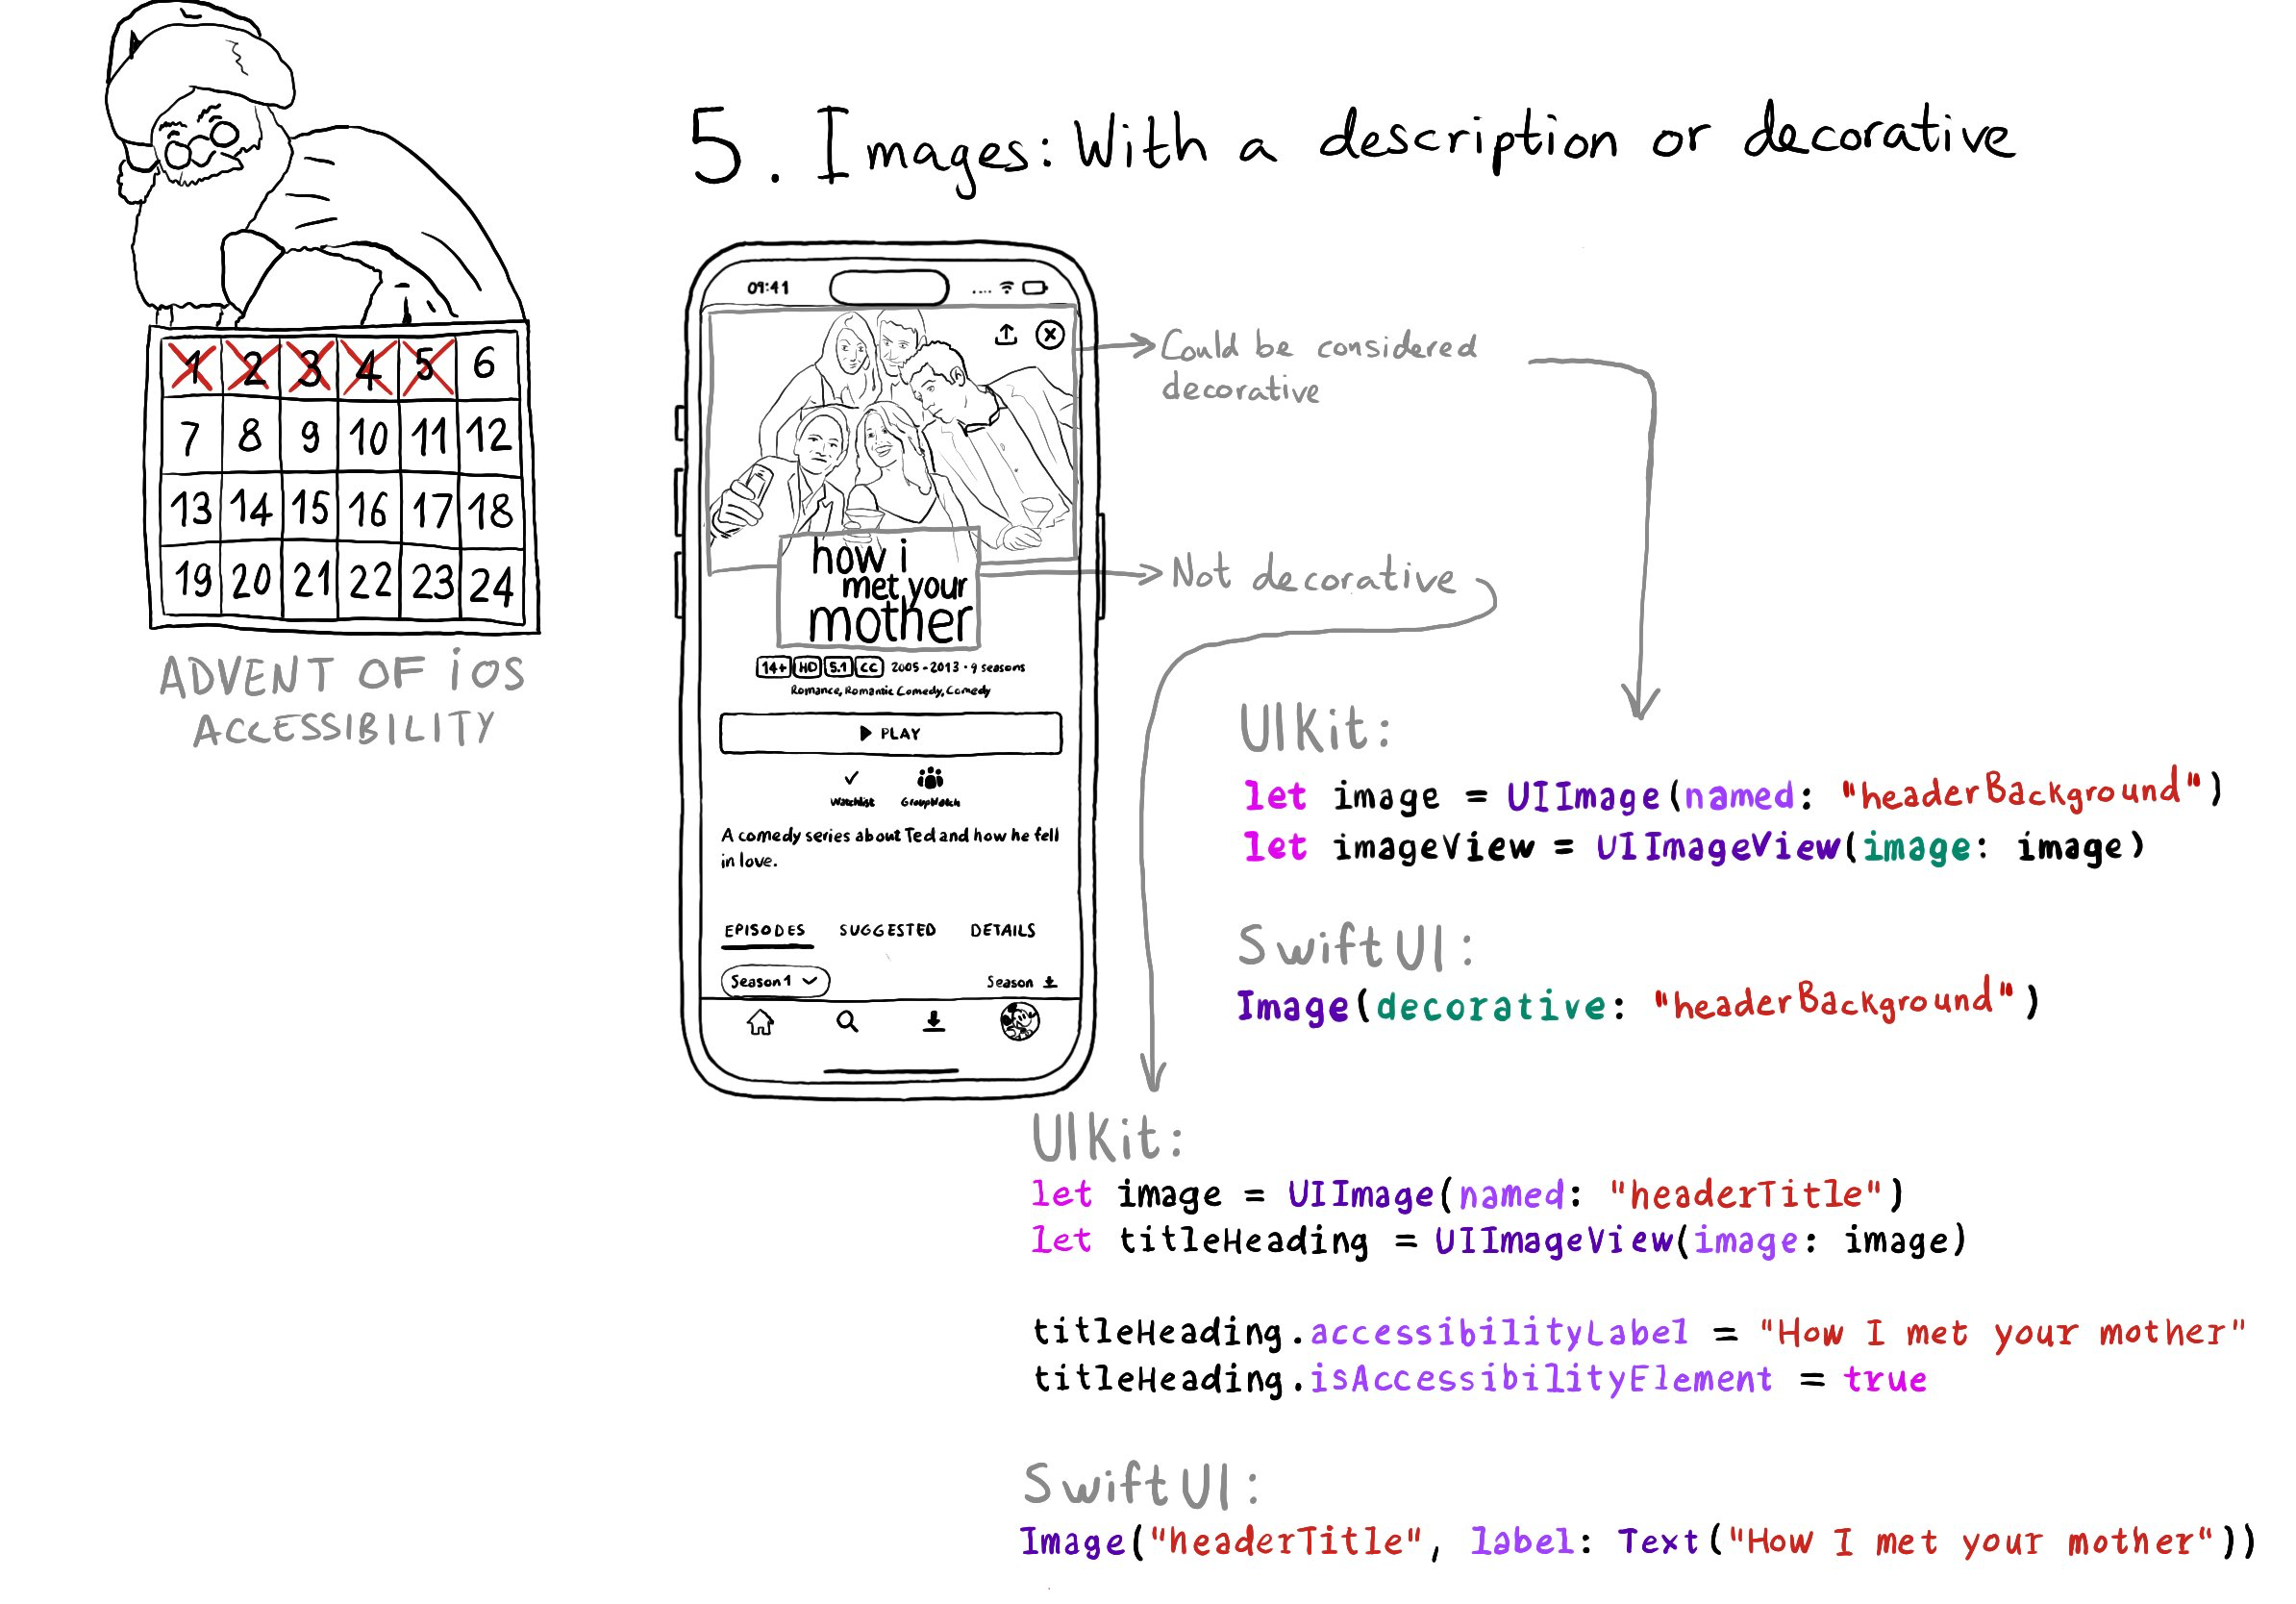 5. Images: With a description or decorative
1 2 3 4 5 6
7 8 9 10 11 12
13 14 15 16 17 18
19 20 21 22 23 24
ADVENT OF iOS
ACCESSIBILITY
09:41
how i
met your
mother
14+ HD 5.1 CC 2005-2013 · 9 seasons
Romance, Romantic Comedy, Comedy
PLAY
Watchlist GroupWatch
A comedy series about Ted and how he fell
in love.
EPISODES SUGGESTED DETAILS
Season 1 Season
Could be considered
decorative
Not decorative
UIKit:
let image = UIImage(named: "headerBackground")
let imageView = UIImageView(image: image)
SwiftUI:
Image(decorative: "headerBackground")
UIKit:
let image = UIImage(named: "headerTitle")
let titleHeading = UIImageView(image: image)
titleHeading.accessibilityLabel = "How I met your mother"
titleHeading.isAccessibilityElement = true
SwiftUI:
Image("headerTitle", label: Text("How I met your mother"))